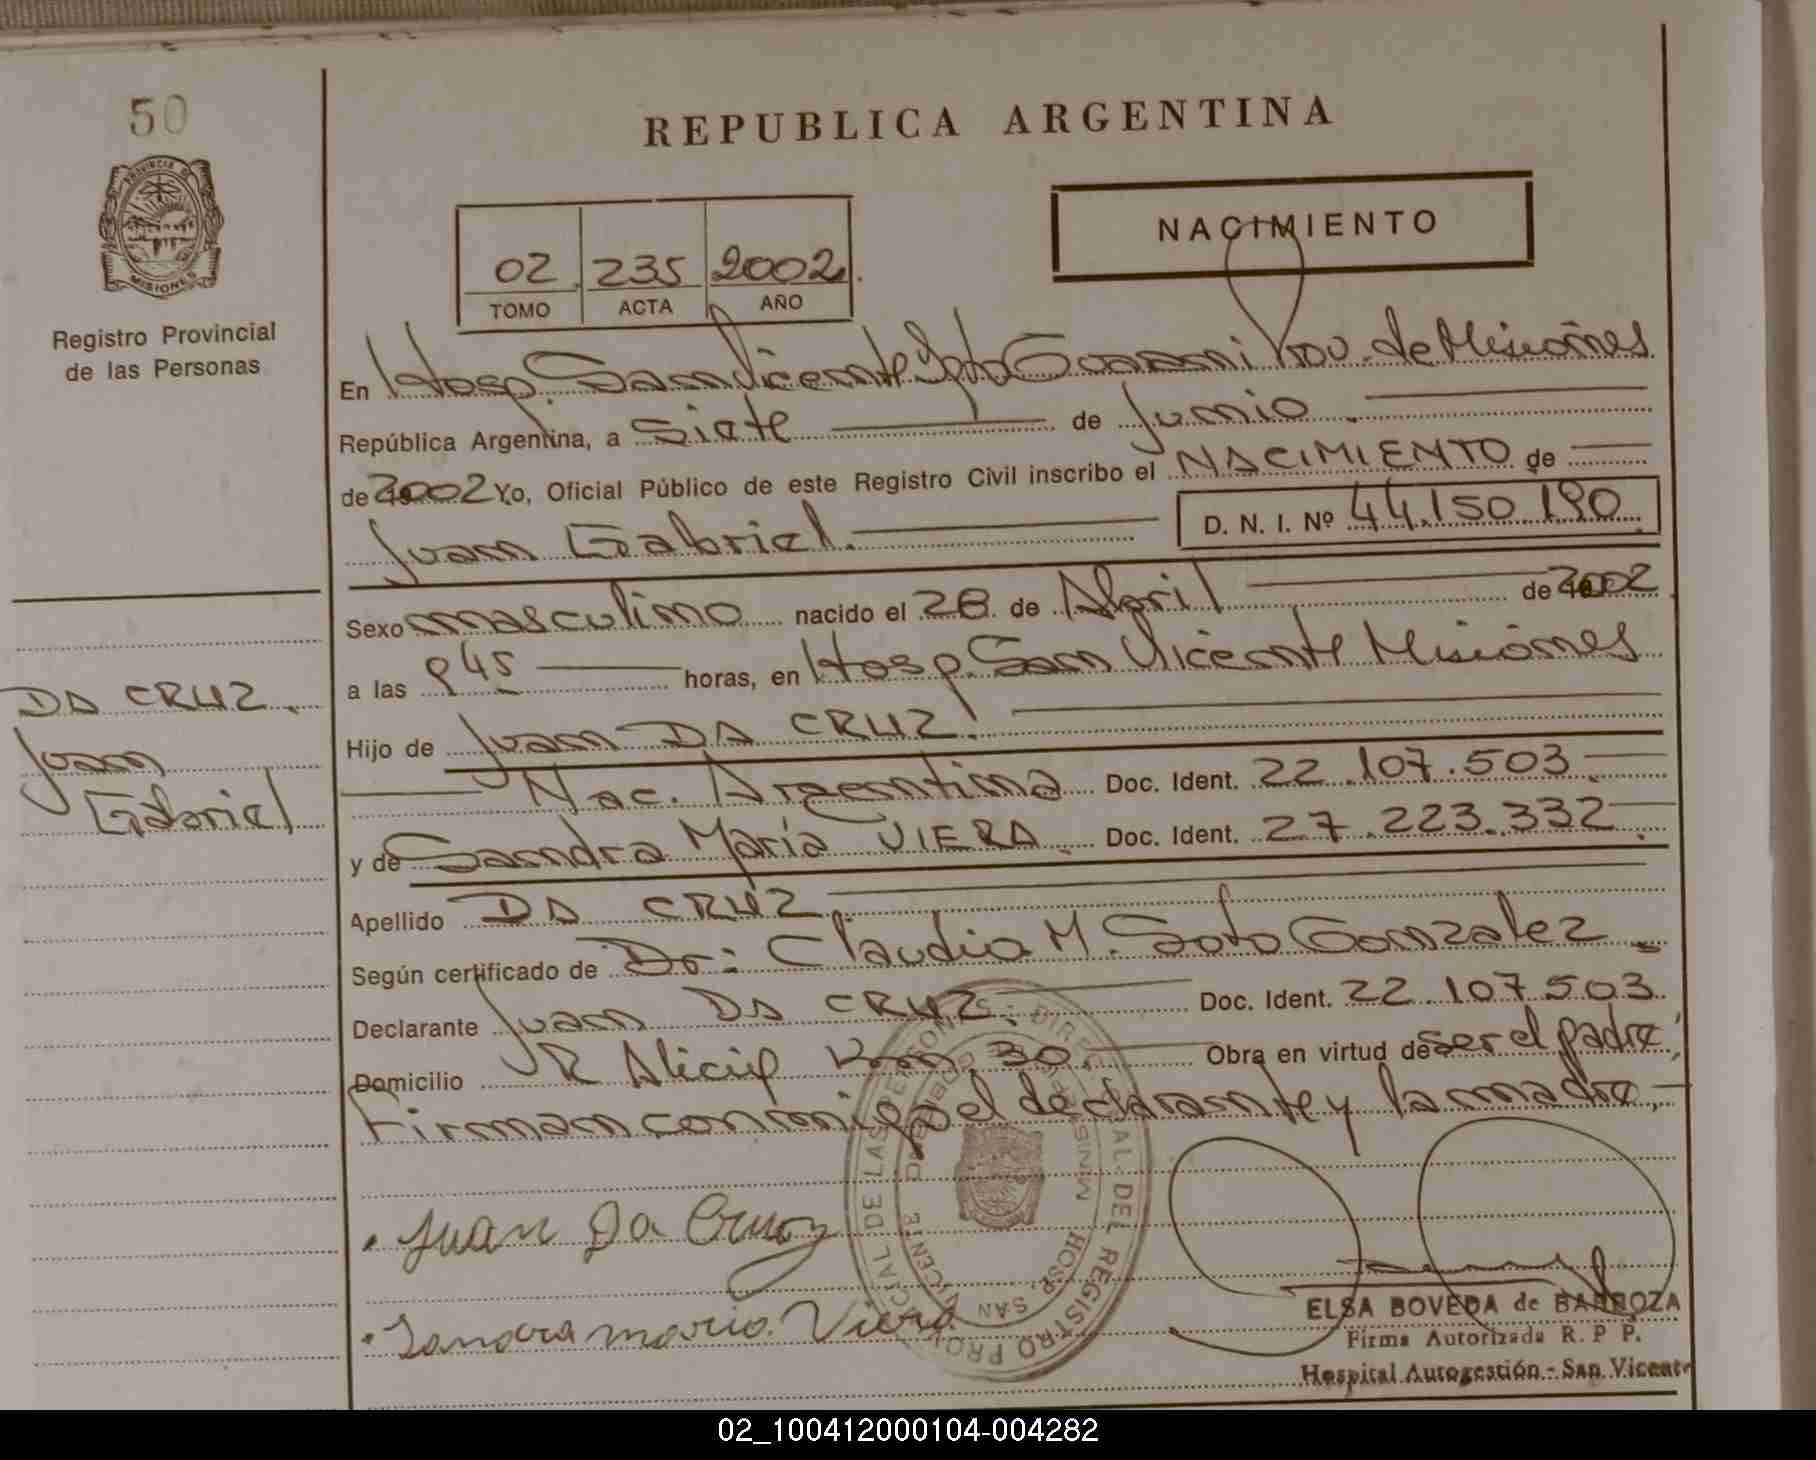 50
PROVINCIA DE
MISIONES
Registro Provincial
de las Personas
DA CRUZ.
Juan
Gabriel
REPUBLICA ARGENTINA
02 235 2002
TOMO ACTA AÑO
NACIMIENTO
En Hosp. San Vicente Dpto Guarani Prov. de Misiones
República Argentina, a siete de Junio.
de 2002 Yo, Oficial Público de este Registro Civil inscribo el NACIMIENTO de
Juan Gabriel. D. N. I. Nº 44.150.190
Sexo masculino nacido el 28 de Abril de 2002
a las 945 horas, en Hosp. San Vicente Misiones
Hijo de Juan DA CRUZ.
Nac. Argentina Doc. Ident. 22.107.503
y de Sandra María VIERA. Doc. Ident. 27.223.332.
Apellido DA CRUZ
Según certificado de Dr: Claudio M. Soto Gonzalez
Declarante Juan DA CRUZ. Doc. Ident. 22.107.503
Domicilio Km 30. Obra en virtud de ser el padre;
Firman conmigo el declarante y la madre.
Juan Da Cruz
Sandra maria Viera
DIREC. PROVINCIAL DEL REGISTRO PROVINCIAL DE LAS PERSONAS
HOSP. SAN VICENTE
ELSA BOVEDA de BARBOZA
Firma Autorizada R. P P.
Hospital Autogestión - San Vicente
02_100412000104-004282